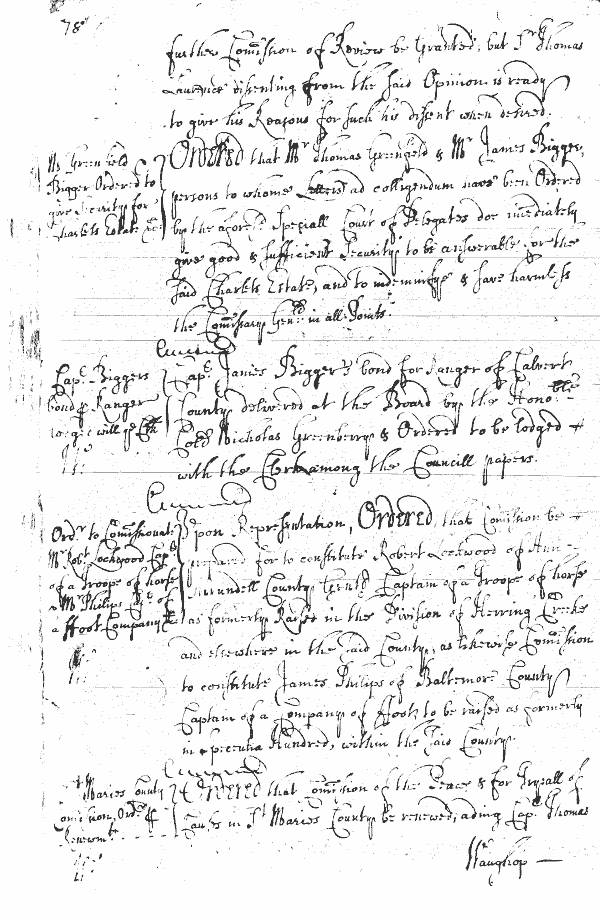 78
further Comission of Review be Granted, but Sr Thomas
Laurence disenting from the said Opinion is ready
to give his Reasons for such his disent when desired.
Mr Greenfield
Bigger Ordered to
give Security for
Charlets Estate &c
Ordered that Mr Thomas Greenfield & Mr James Bigger,
persons to whome Letters ad colligendum have been Ordered
by the aforesd Speciall Court of Delegates doe imediately
give good & sufficient Security to be answerable for the
said Charlets Estate, and to indemnifye & save harmless
the Comissary Genll in all Points.
Capt Biggers
bond Ranger
lodged with ye Clk
Capt James Bigger's bond for Ranger of Calvert
County delivered at the Board by the Honoble
Coll Nicholas Greenberry & Ordered to be lodged
with the Clerk among the Councill papers.
Ordr to Comissionate
Mr Robt Lockwood Capt
of a Troope of horse
& Mr Philips of
a ffoot Company
Upon Representation, Ordered that Comission be
prepared for to constitute Robert Lockwood of Ann
Arrundell County Gentl Captain of a Troope of horse
as formerly Raised in the Division of Herring Creeke
and elsewhere in the said County, as likewise Comission
to constitute James Philips of Baltemore County
Captain of a Company of ffoot to be raised as formerly
in Hundred, within the said County.
St Maries County
Comission Ordrd
Renewed
Ordered that Comission of the Peace & for Tryall of
Causes in St Maries County be renewed, ading Capt Thomas
Waughop